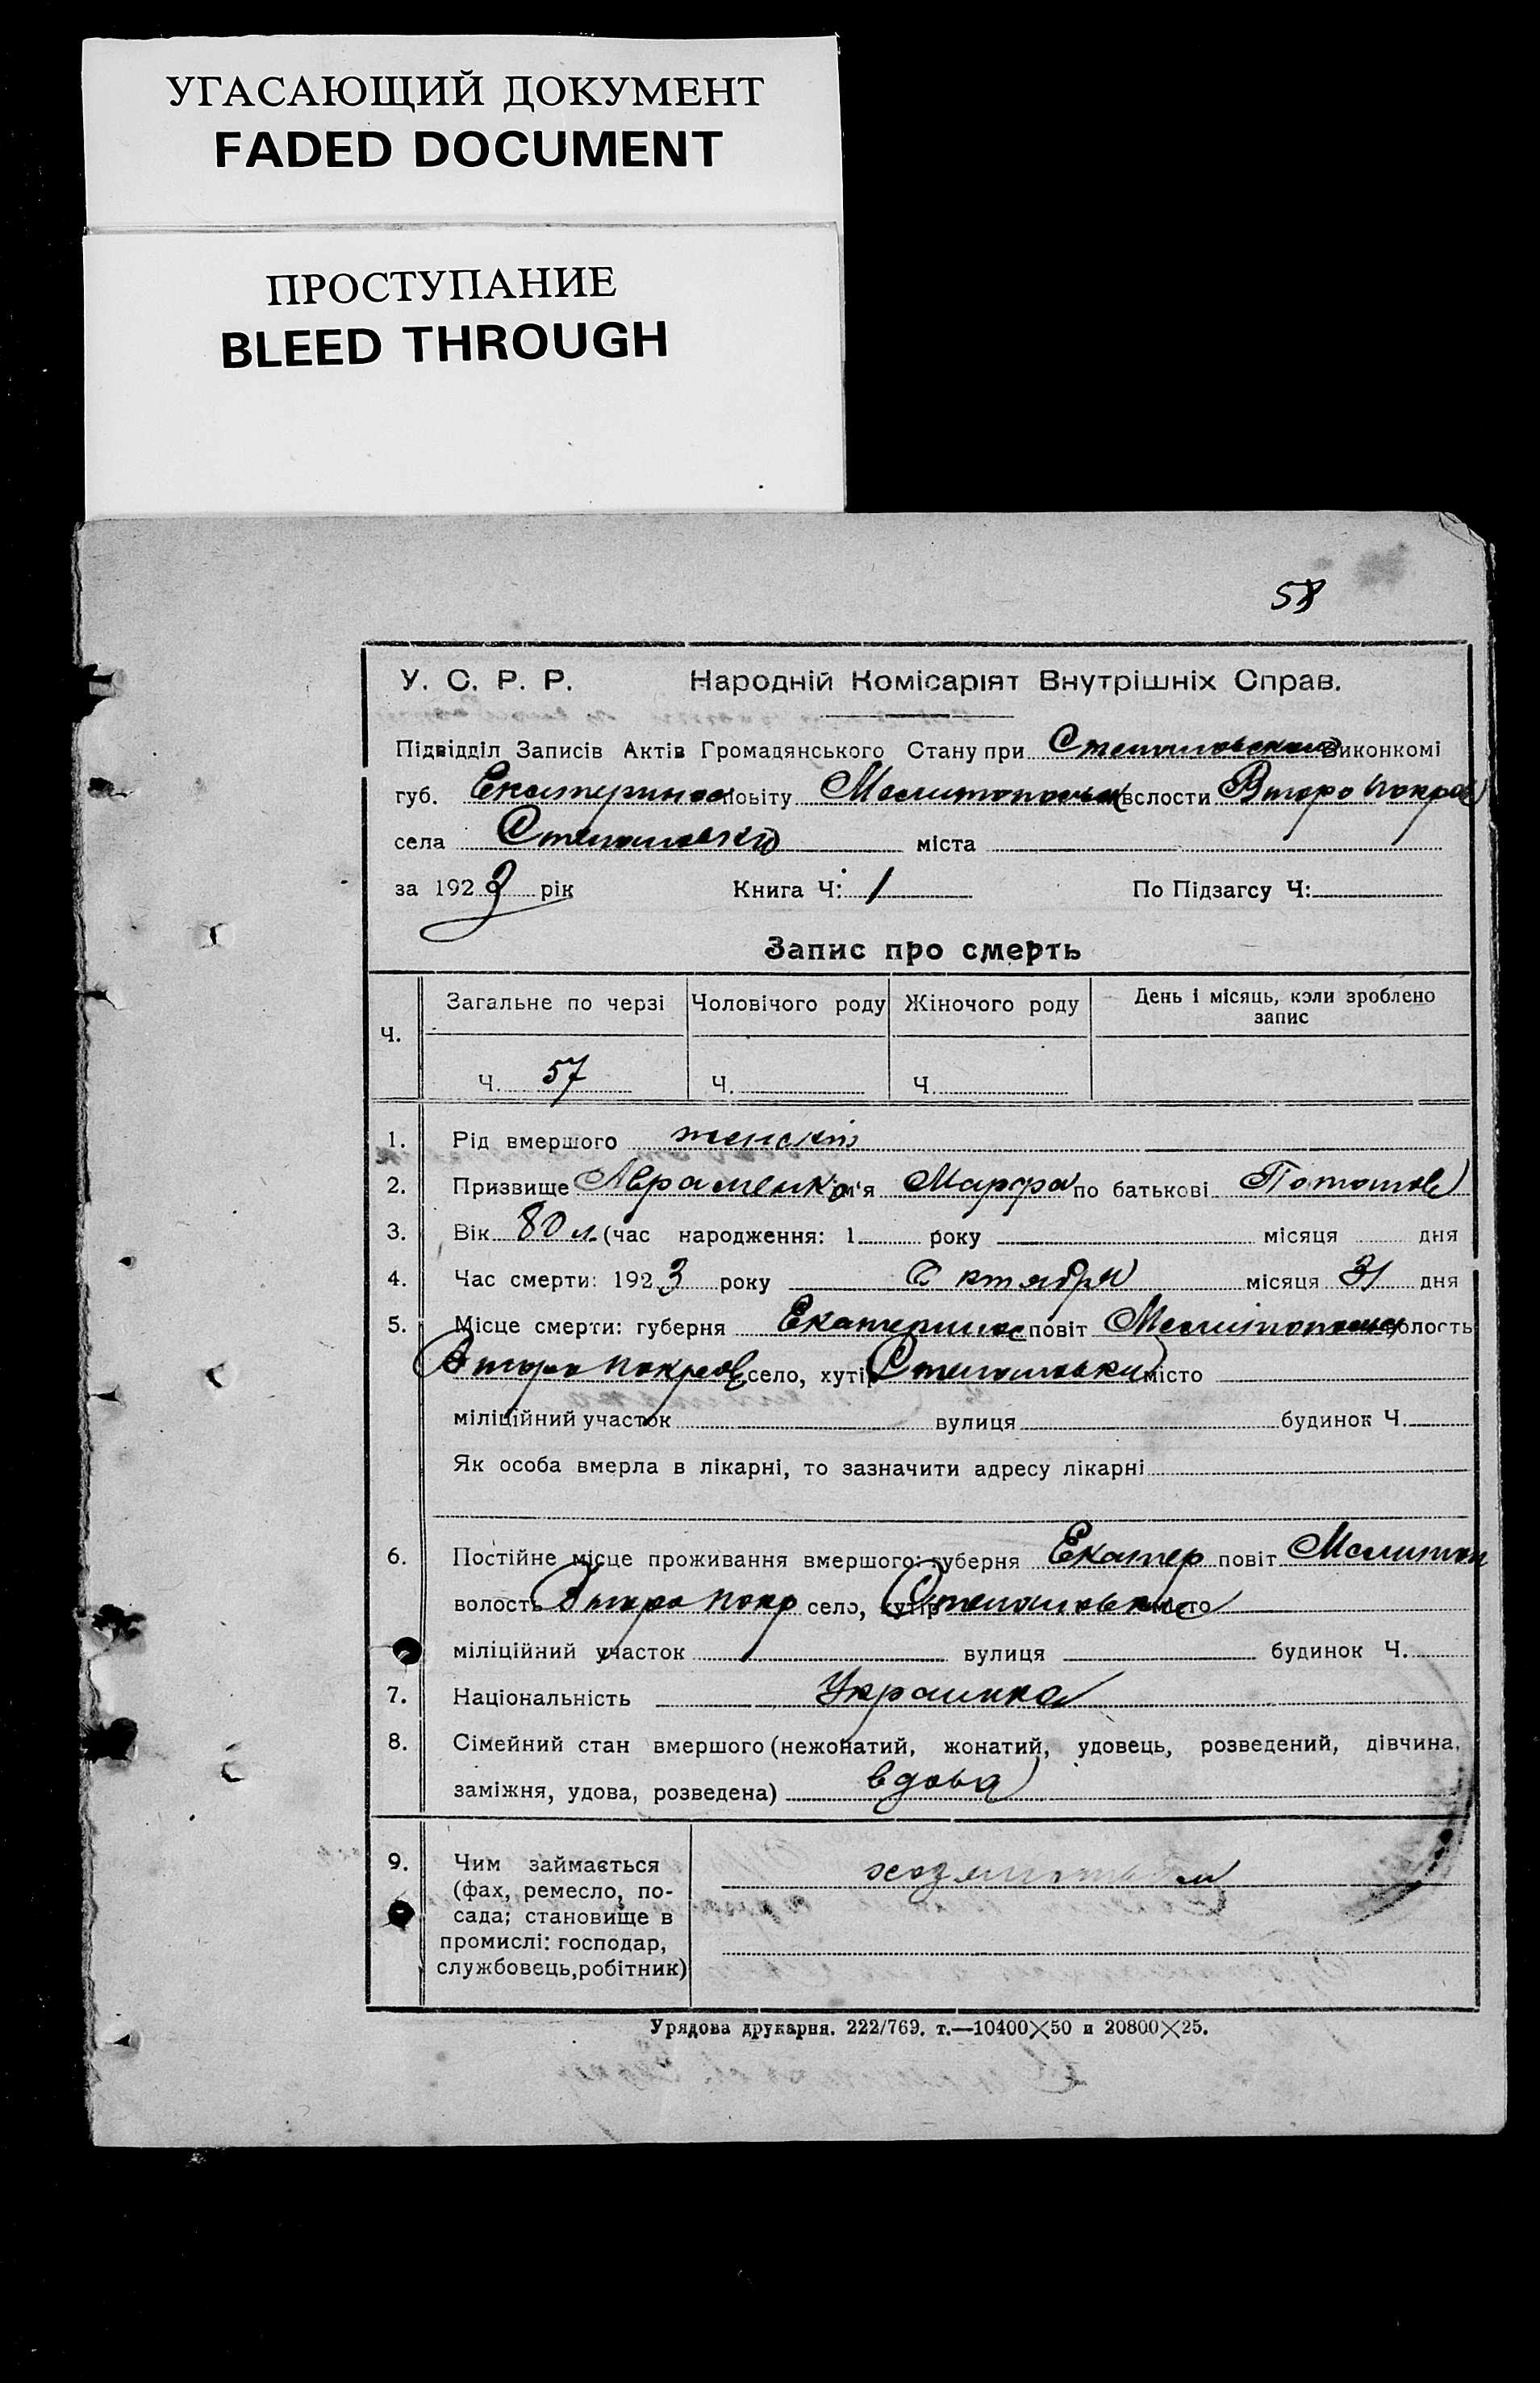 УГАСАЮЩИЙ ДОКУМЕНТ
FADED DOCUMENT
ПРОСТУПАНИЕ
BLEED THROUGH
58
У. С. Р. Р. Народній Комісаріят Внутрішніх Справ.
Підвідділ Записів Актів Громадянського Стану при Виконкомі
губ. Екатеринос повіту волости Второ Покров
села міста
за 1923 рік Книга Ч: 1 По Підзагсу Ч:
Запис про смерть
Ч. Загальне по черзі Чоловічого роду Жіночого роду День і місяць, коли зроблено
запис
Ч. 57 Ч. Ч.
1. Рід вмершого женскій
2. Призвище Авраменко ім'я Марфа по батькові
3. Вік 80 л. (час народження: 1 року місяця дня
4. Час смерти: 1923 року Октября місяця 31 дня
5. Місце смерти: губерня Екатеринос повіт волость
Второ Покров село, хутір місто
міліційний участок вулиця будинок Ч.
Як особа вмерла в лікарні, то зазначити адресу лікарні
6. Постійне місце проживання вмершого: губерня Екатер повіт Мелитоп
волость Второ Покр село, хутір місто
міліційний участок вулиця будинок Ч.
7. Національність Украинка
8. Сімейний стан вмершого (нежонатий, жонатий, удовець, розведений, дівчина,
заміжня, удова, розведена) вдова
9. Чим займається
(фах, ремесло, по-
сада; становище в
промислі: господар,
службовець, робітник)
Урядова друкарня. 222/769. т.—10400×50 и 20800×25.